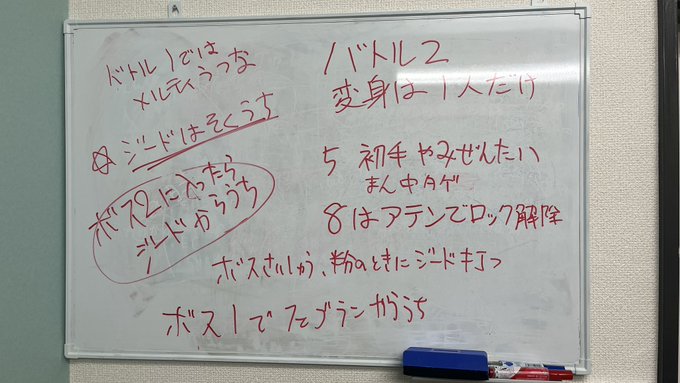 バトル1では
メルティうつな
☆ジードはそくうち
ボス2に入ったら
ジードからうち
バトル2
変身は1人だけ
5 初手やみぜんたい
まん中タゲ
8はアテンでロック解除
ボスさいしょから、粉のときにジード打つ
ボス1でフェブランからうち